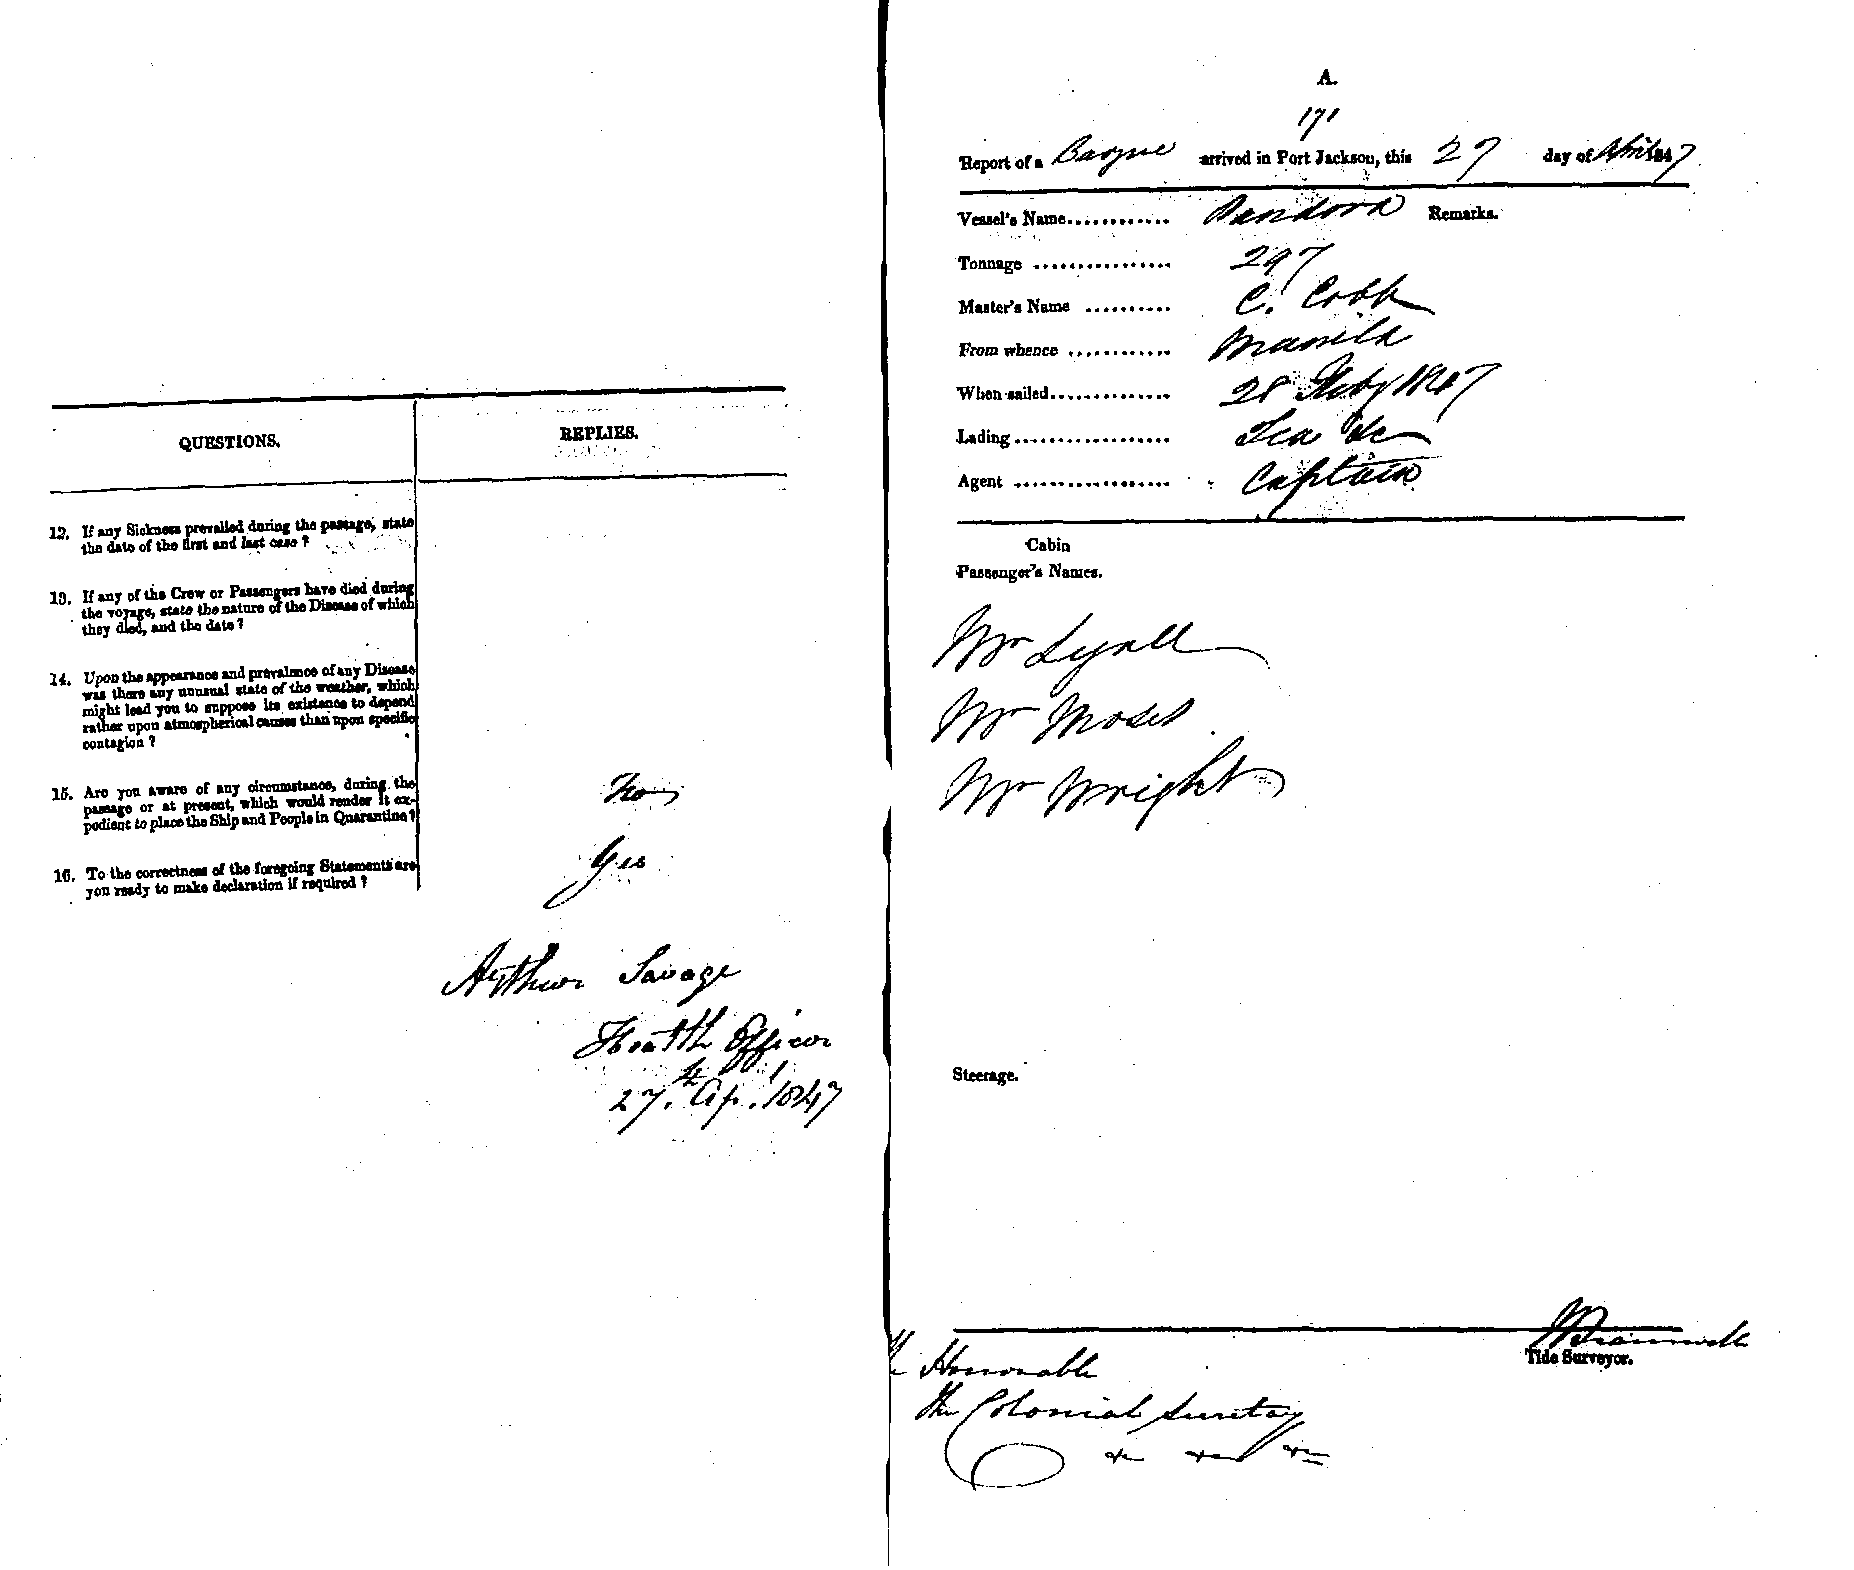 QUESTIONS.
REPLIES.
12. If any Sickness prevailed during the passage, state
the date of the first and last case ?
13. If any of the Crew or Passengers have died during
the voyage, state the nature of the Disease of which
they died, and the date ?
14. Upon the appearance and prevalence of any Disease
was there any unusual state of the weather, which
might lead you to suppose its existence to depend
rather upon atmospherical causes than upon specific
contagion ?
15. Are you aware of any circumstance, during the
passage or at present, which would render it ex-
pedient to place the Ship and People in Quarantine ?
No
16. To the correctness of the foregoing Statements are
you ready to make declaration if required ?
Yes
Arthur Savage
Health Officer
27.th Apl. 1847
A.
171
Report of a Barque arrived in Port Jackson, this 27 day of April 1847
Vessel's Name............ Pandora Remarks.
Tonnage ................ 297
Master's Name .......... C. Cobb
From whence ............ Manila
When sailed.............. 28 Feby 1847
Lading.................. Tea &c
Agent .................. Captain
Cabin
Passenger's Names.
Mr Lyall
Mr Moses
Mr Wright
Steerage.
Tide Surveyor.
Honorable
The Colonial Secretary
&c &c &c